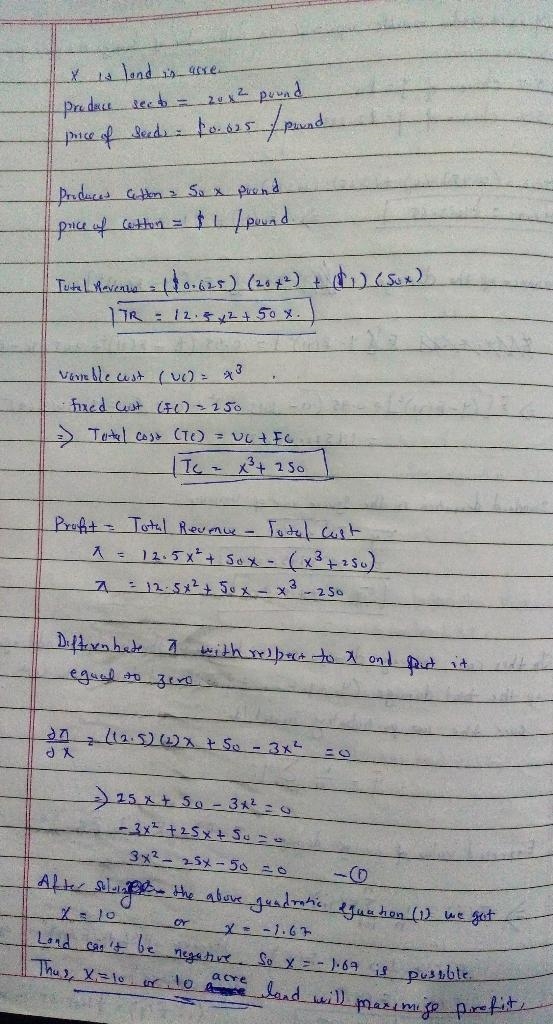 x is land in acre.
produce seeds = 20x² pound
price of seeds = $0.625 / pound
Produces cotton = 50 x pound
price of cotton = $1 / pound
Total Revenue = ($0.625) (20x²) + ($1) (50x)
TR = 12.5x² + 50x.
variable cost (VC) = x³.
fixed cost (FC) = 250
=> Total cost (TC) = VC + FC
TC = x³ + 250
Profit = Total Revenue - Total cost
π = 12.5x² + 50x - (x³ + 250)
π = 12.5x² + 50x - x³ - 250
Differentiate π with respect to x and put it
equal to zero
∂π/∂x = (12.5)(2)x + 50 - 3x² = 0
=> 25x + 50 - 3x² = 0
-3x² + 25x + 50 = 0
3x² - 25x - 50 = 0 -(1)
After solving the above quadratic equation (1) we get
x = 10 or x = -1.67
Land can't be negative. So x = -1.67 is possible.
Thus, x=10 or 10 acre land will maximize profit,